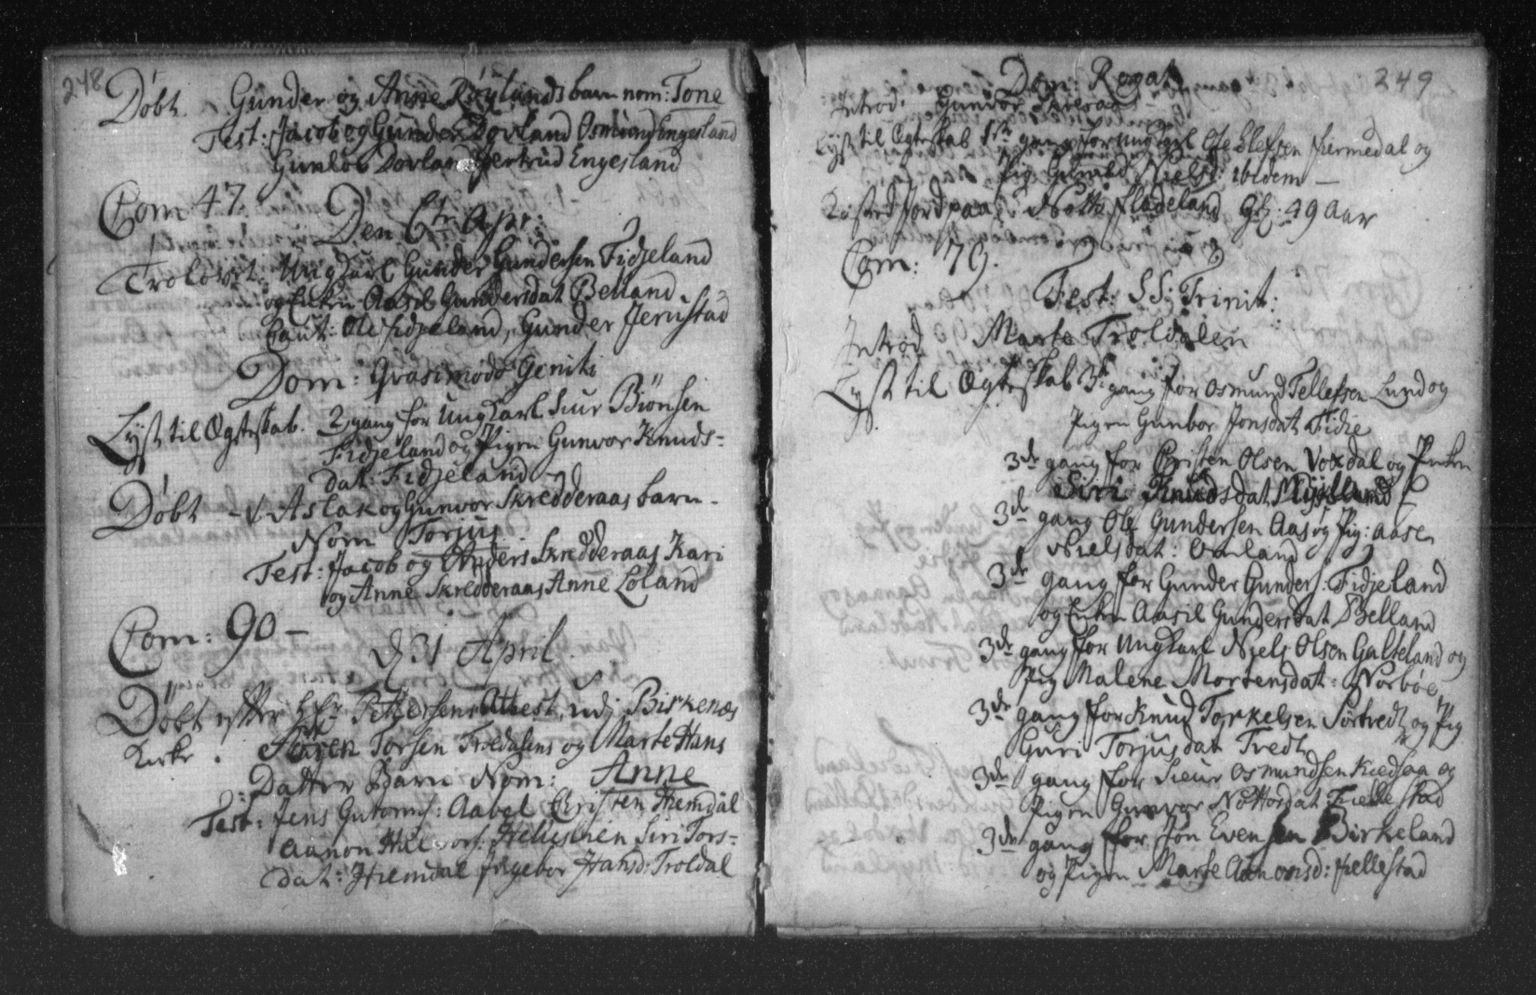 248
Døbt. Gunder og Anne Røylands barn nom: Tone
Test: Jacob og Gunder Dovland Osmund Engesland
Gunlob Dovland Gertrud Engesland
Com 47.
Den 6te Apr:
Trolovet Ungkarl Gunder Gundersen Fidjeland
og Enken Aasil Gundersdat Belland
Caut: Ole Fidjeland, Gunder Jerustad
Dom: Qvasimodo Geniti
Lyst til Ægteskab. 2 gang for Ungkarl Siur Biønsen
Fidjeland og Pigen Gunvor Knuds-
dat: Fidjeland
Døbt - Aslak og Gunvor Skredderaas barn -
Nom Torjus
Test: Jacob og Anders Skredderaas Kari
og Anne Skredderaas Anne Loland
Com: 90 -
d 31 April
Døbt efter Hr Petersens Attest, udj Birkenæs
Kirke. Søren Torsen Troldalens og Marte Hans
Datter Barn Nom: Anne
Test: Jens Gutorms: Aavel Christen Hemdal
Aanon Halvors: Siri Tors-
dat: Hiemdal Ingebor Hansd: Troldal
249
Dom: Rogat
Introd: Gunvor Skreraas
Lyst til Ægteskab 1ste gang for Ungkarl Ole Olefsen Fiermedal og
Pig: Gunild Niels: ibidem -
Kasted Jord paa Fladeland Gl: 49 Aar
Com: 79.
Fest: SS: Trinit:
Introd Marte Troldalen
Lyst til Ægteskab 3de gang for Osmund Tellefsen Lund og
Pigen Gunbor Jonsdat Fidie
3de gang for Christen Olsen Voxdal og Enken
Siri Knudsdat Mykland
3de gang Ole Gundersen Aas og Pig: Aasen
Nielsdat:
3de gang for Gunder Gunders: Fidjeland
og Enken Aasil Gundersdat Belland
3de gang for Ungkarl Niels Olsen Galteland og
Pig Malene Mortensdat: Norbøe
3de gang for Knud Torkelsen Sørtvedt og Pig
Guri Torjusdat Tvedt
3de gang for Sieur Osmundsen Kiedsaa og
Pigen Gunvor Nottordat Fiellestad
3de gang for Jon Evensen Birkeland
og Pigen Marte Aanonsd: Fiellestad